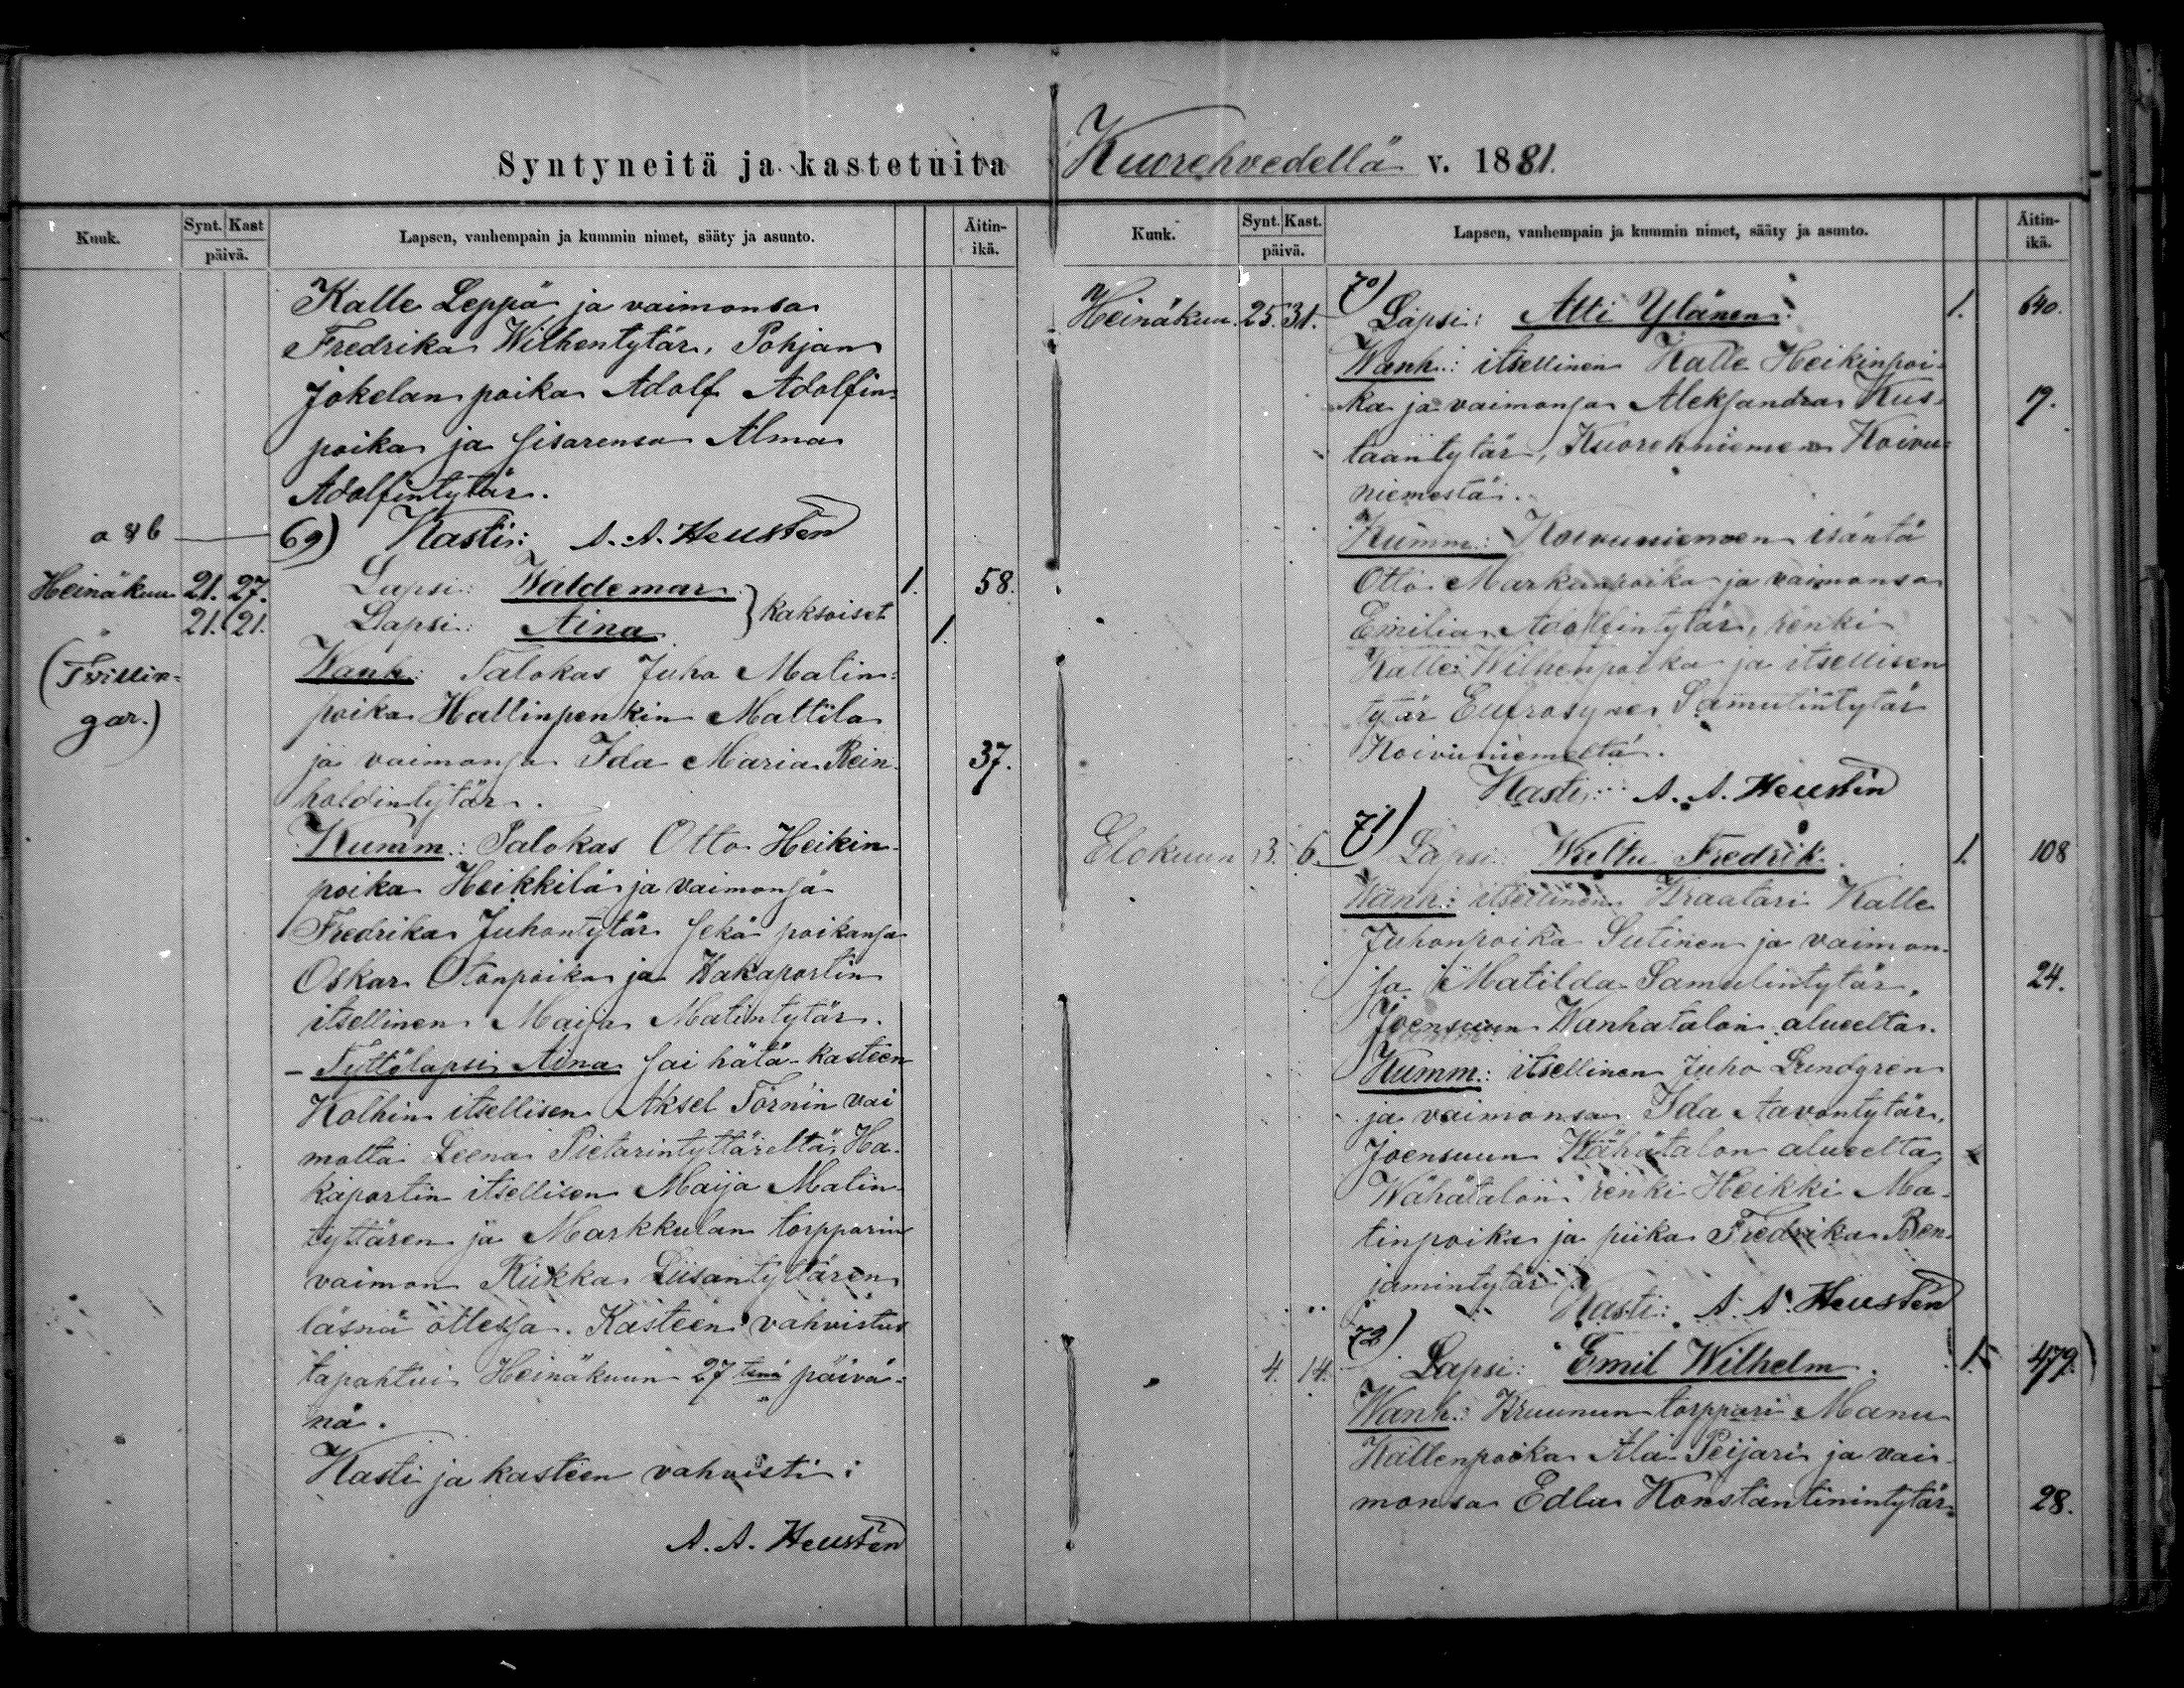 Syntyneitä ja kastetuita Kuorehvedellä v. 1881.
Kuuk. Synt. Kast päivä. Lapsen, vanhempain ja kummin nimet, sääty ja asunto. Äitin-ikä.
Kalle Leppä ja vaimonsa
Fredrika Wilhentytär, Pohjan
Jokelan poika Adolf Adolfin-
poika ja sisarensa Alma
Adolfintytär.
a & b 69) Kasti: A. A. Heustén
Heinäkuu 21. 27. Lapsi: Waldemar 1. 58.
21. 21. Lapsi: Aina } kaksoiset 1.
(Trillin-
gar.)
Wanh: Talokas Juho Matin-
poika Hallinpenkin Mattila
ja vaimonsa Ida Maria Rein- 37.
holdintytär.
Kumm.: Talokas Otto Heikin-
poika Heikkilä ja vaimonsa
Fredrika Juhontytär sekä poikansa
Oskar Otonpoika ja Hakaportin
itsellinen Maija Matintytär.
- Tyttölapsi Aina sai hätä-kasteen
Kolhin itsellisen Aksel Törnin vai
molta Leena Pietarintyttäreltä, Ha-
kaportin itsellisen Maija Matin-
tyttären ja Markkulan torpparin
vaimon Riikka Liisantyttären
läsnä ollessa. Kasteen vahvistus
tapahtui Heinäkuun 27 tenä päivä-
nä.
Kasti ja kasteen vahvisti:
A. A. Heustén
Kuuk. Synt. Kast. päivä. Lapsen, vanhempain ja kummin nimet, sääty ja asunto. Äitin-ikä.
70)
Heinäkuu. 25. 31. Lapsi: Atti Ylänen. 1. 640.
Wanh.: itsellinen Kalle Heikinpoi-
ka ja vaimonsa Aleksandra Kus- 19.
taantytär, Kuorehniemen Koivu-
niemestä.
Kumm.: Koivuniemen isäntä
Otto Markunpoika ja vaimonsa
Emilia Adolfintytär, renki
Kalle Wilhenpoika ja itsellisen
tytär Eufrosyne Samulintytär
Koivuniemeltä.
Kasti: A. A. Heustén
71)
Elokuun 3. 6. Lapsi: Weltu Fredrik. 1. 108
Wanh.: itsellinen Kraatari Kalle
Juhonpoika Sutinen ja vaimon-
sa Matilda Samulintytär, 24.
Joensuun Wanhatalon alueelta.
Kumm.: itsellinen Juho Lundgren
ja vaimonsa Ida Aavontytär,
Joensuun Wähätalon alueelta
Wähätalon renki Heikki Ma-
tinpoika ja piika Fredrika Ben-
jamintytär.
Kasti: A. A. Heustén
72)
4. 14. Lapsi: Emil Wilhelm. 1. 479.
Wanh.: Kruunun torppari Manu
Kallenpoika Ala-Peijari ja vai-
monsa Edla Konstantinintytär, 28.